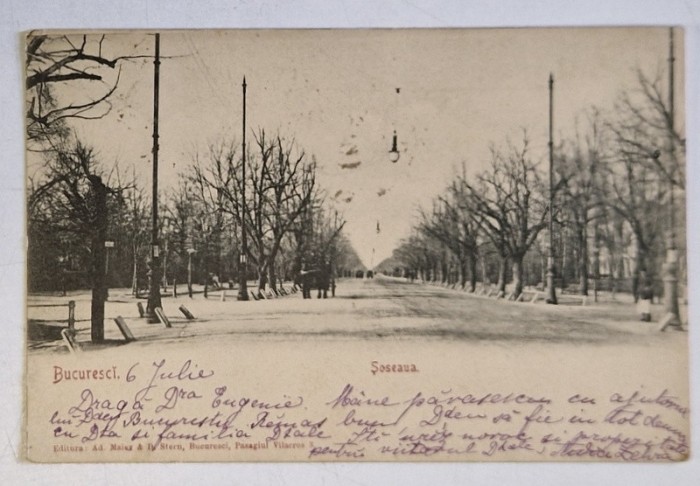 Bucurescĭ. 6 Julie
Șoseaua.
Dragă Dra Eugenie. Mâine părăsescu cu ajutorul
lui Dzeu Bucurestu Rămas bun Dzeu să fie in tot deauna
cu Dta si familia Dtale Iti urez noroc si prosperitate
pentru viitorul Dtale
Editura: Ad. Maier & D. Stern, Bucuresci, Pasagiul Vilacros 3.